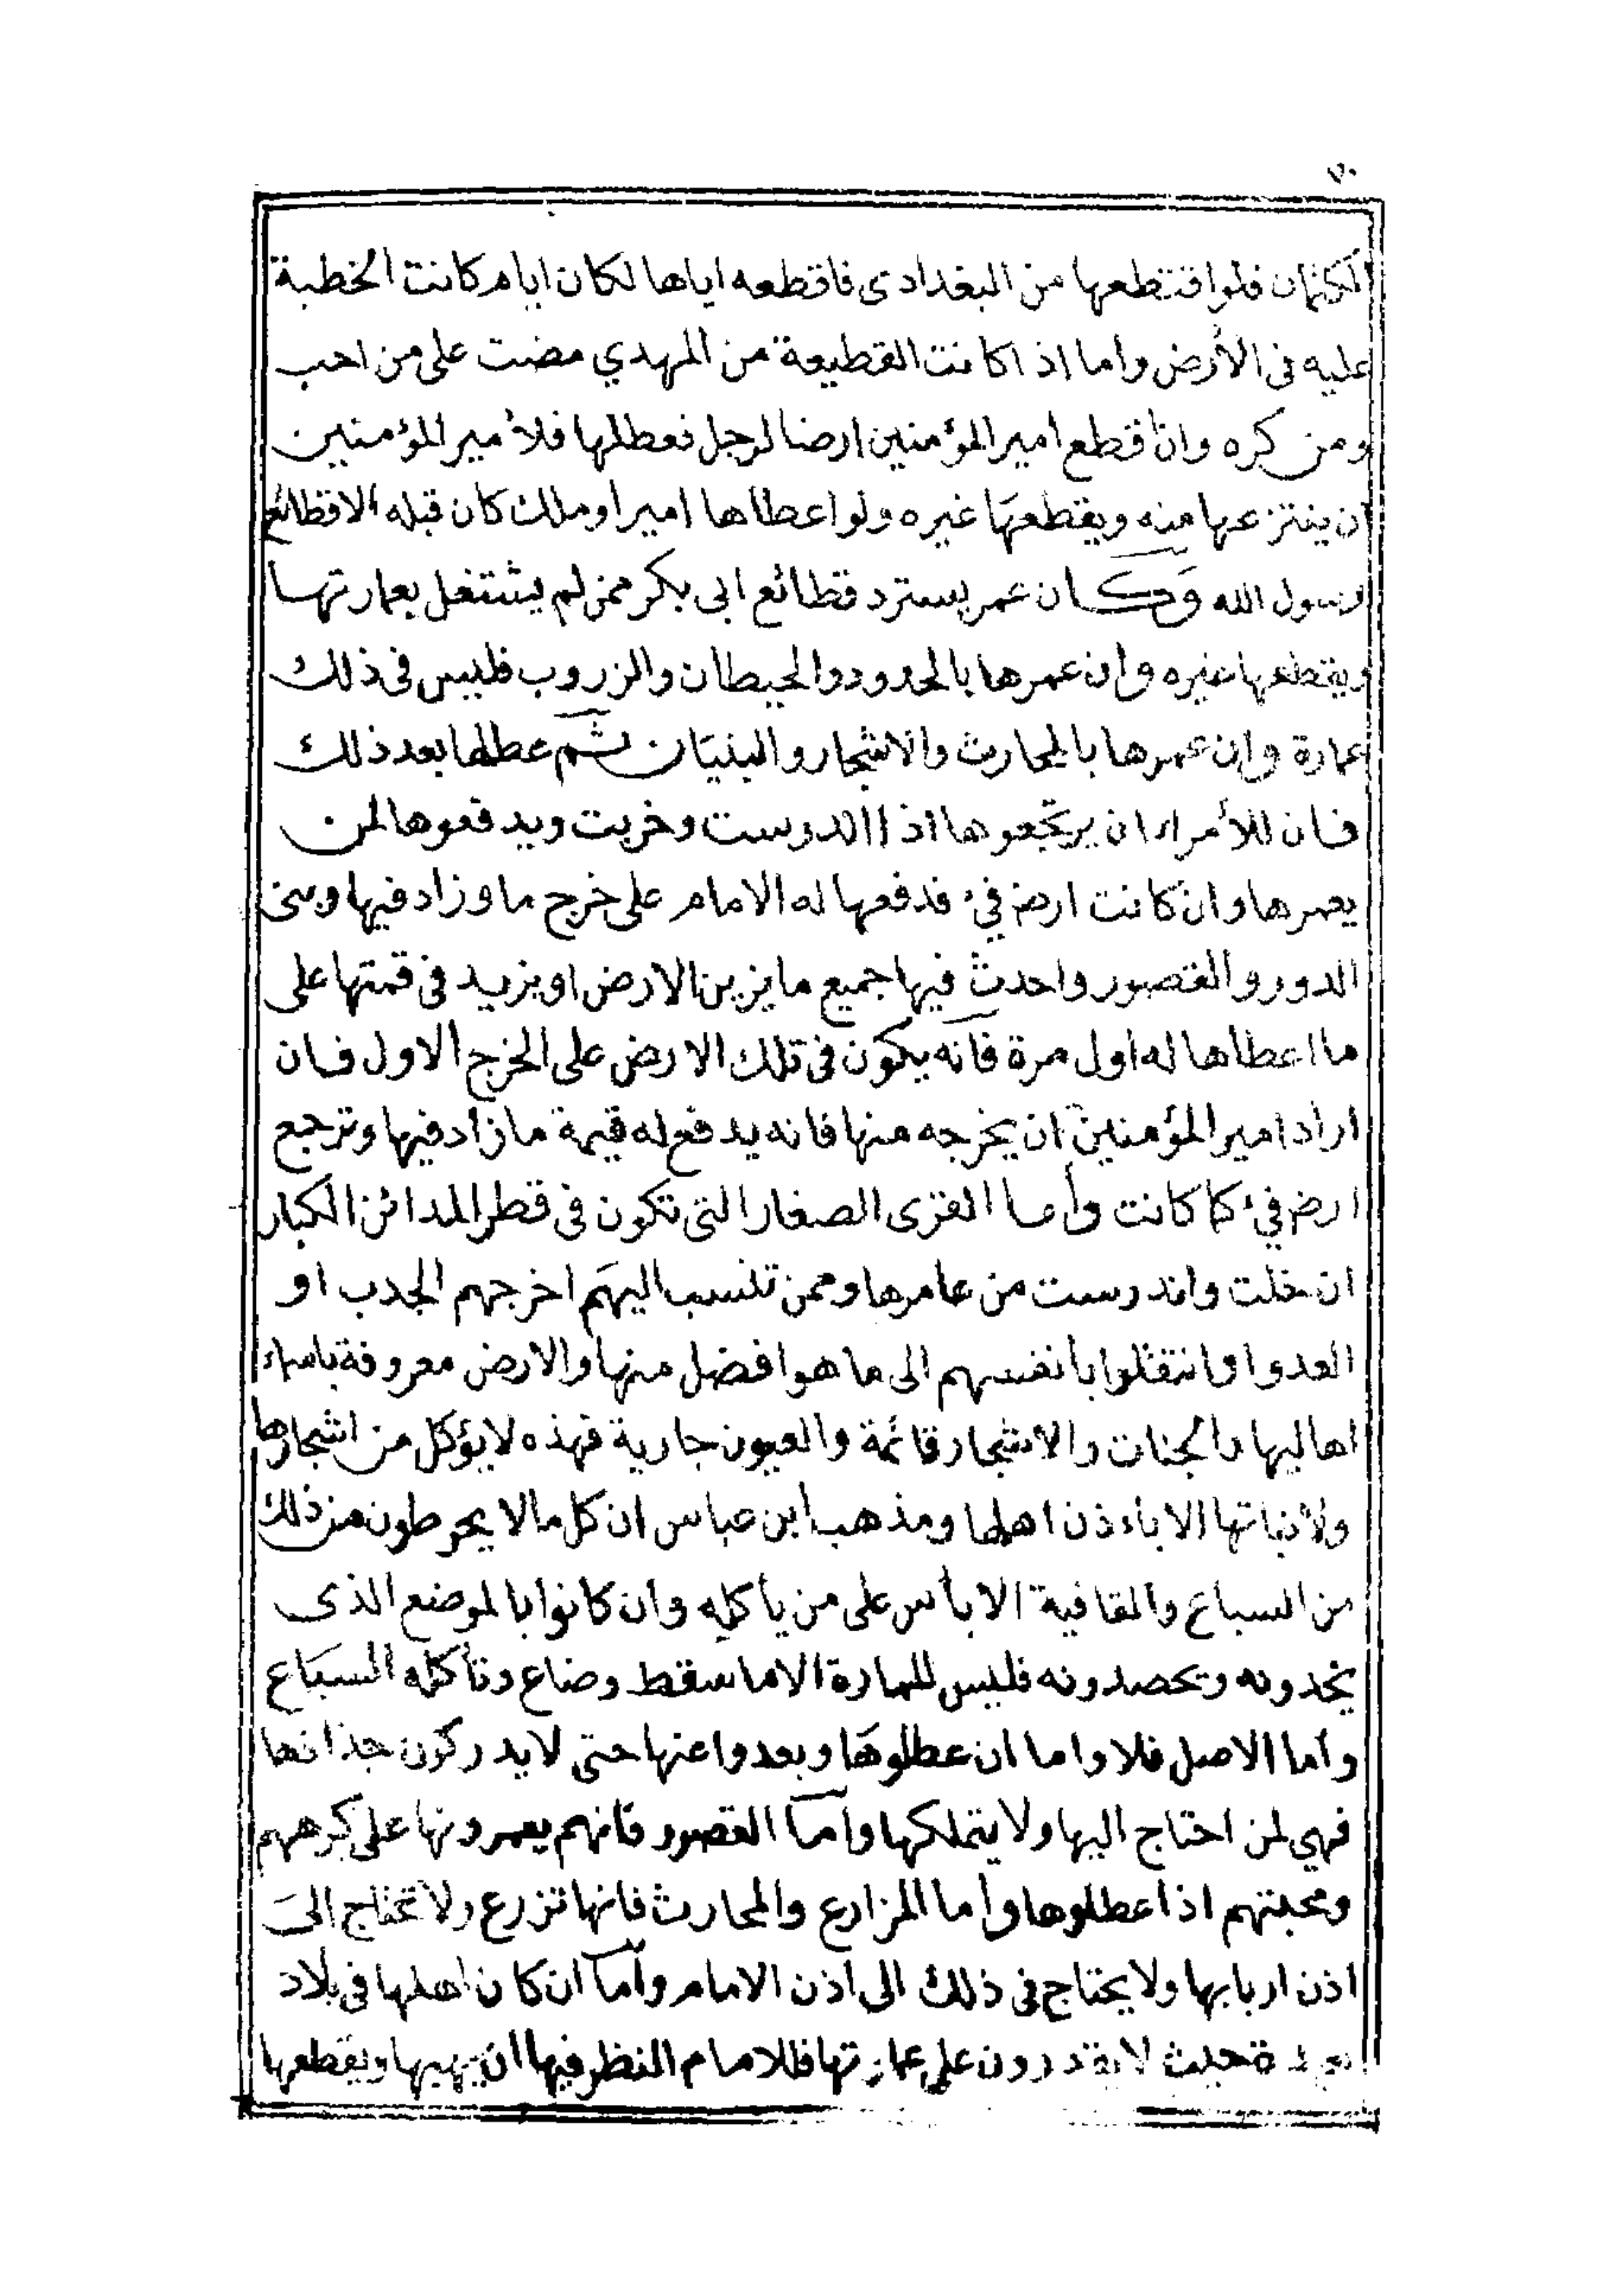 الكتمان فلو اقتطعها من البغدادى فاقطعه اياها لكان ايام كانت الخطبة
عليه فى الأرض واما اذا كانت القطيعة من المهدي مضت على من احب
ومن كره وان اقطع امير المؤمنين ارضا لرجل فعطلها فلأمير المؤمنين
ان ينتزعها منه ويقطعها غيره ولو اعطاها امير او ملك كان قبله الا قطائع
رسول الله وكان عمر يسترد قطائع ابى بكر ممن لم يشتغل بعمارتها
ويقطعها غيره وان عمرها بالحدود والحيطان والزروب فليس فى ذلك
عمارة وان عمرها بالمحارث والاشجار والبنيان ثم عطلها بعد ذلك
فان للأمراء ان يرتجعوها اذا اندرست وخربت ويدفعوها لمن
يعمرها وان كانت ارض فيء فدفعها له الامام على خرج ما وزاد فيها وبنى
الدور والقصور واحدث فيها جميع ما يزين الارض او يزيد فى قمتها على
ما اعطاها له اول مرة فانه يكون فى تلك الارض على الخرج الاول فان
اراد امير المؤمنين ان يخرجه منها فانه يدفع له قيمة ما زاد فيها وترجع
ارض فيء كما كانت وأما القرى الصغار التى تكون فى قطر المدائن الكبار
ان خلت واندرست من عامرها وممن تنسب اليهم اخرجهم الجدب او
العدو او انتقلوا بأنفسهم الى ما هو افضل منها والارض معروفة باسماء
اهاليها والجنات والاشجار قائمة والعيون جارية فهذه لا يؤكل من اشجارها
ولا نباتها الا باءذن اهلها ومذهب ابن عباس ان كل مالا يحوطون من ذلك
من السباع والمقافية الا بأس على من يأكله وان كانوا بالموضع الذى
يخدونه ويحصدونه فليس للمارة الا ما سقط وضاع وتأكله السباع
وأما الاصل فلا واما ان عطلوها وبعدوا عنها حتى لا يدركون جذاذها
فهي لمن احتاج اليها ولا يتملكها وأما القصور فانهم يعمرونها على كرههم
ومحبتهم اذا عطلوها وأما المزارع والمحارث فانها تزرع ولا تحتاج الى
اذن اربابها ولا يحتاج فى ذلك الى اذن الامام وأما ان كان اهلها فى بلاد
بعيدة حيث لا يقدرون على عمارتها فللامام النظر فيها ان يهبها ويقطعها